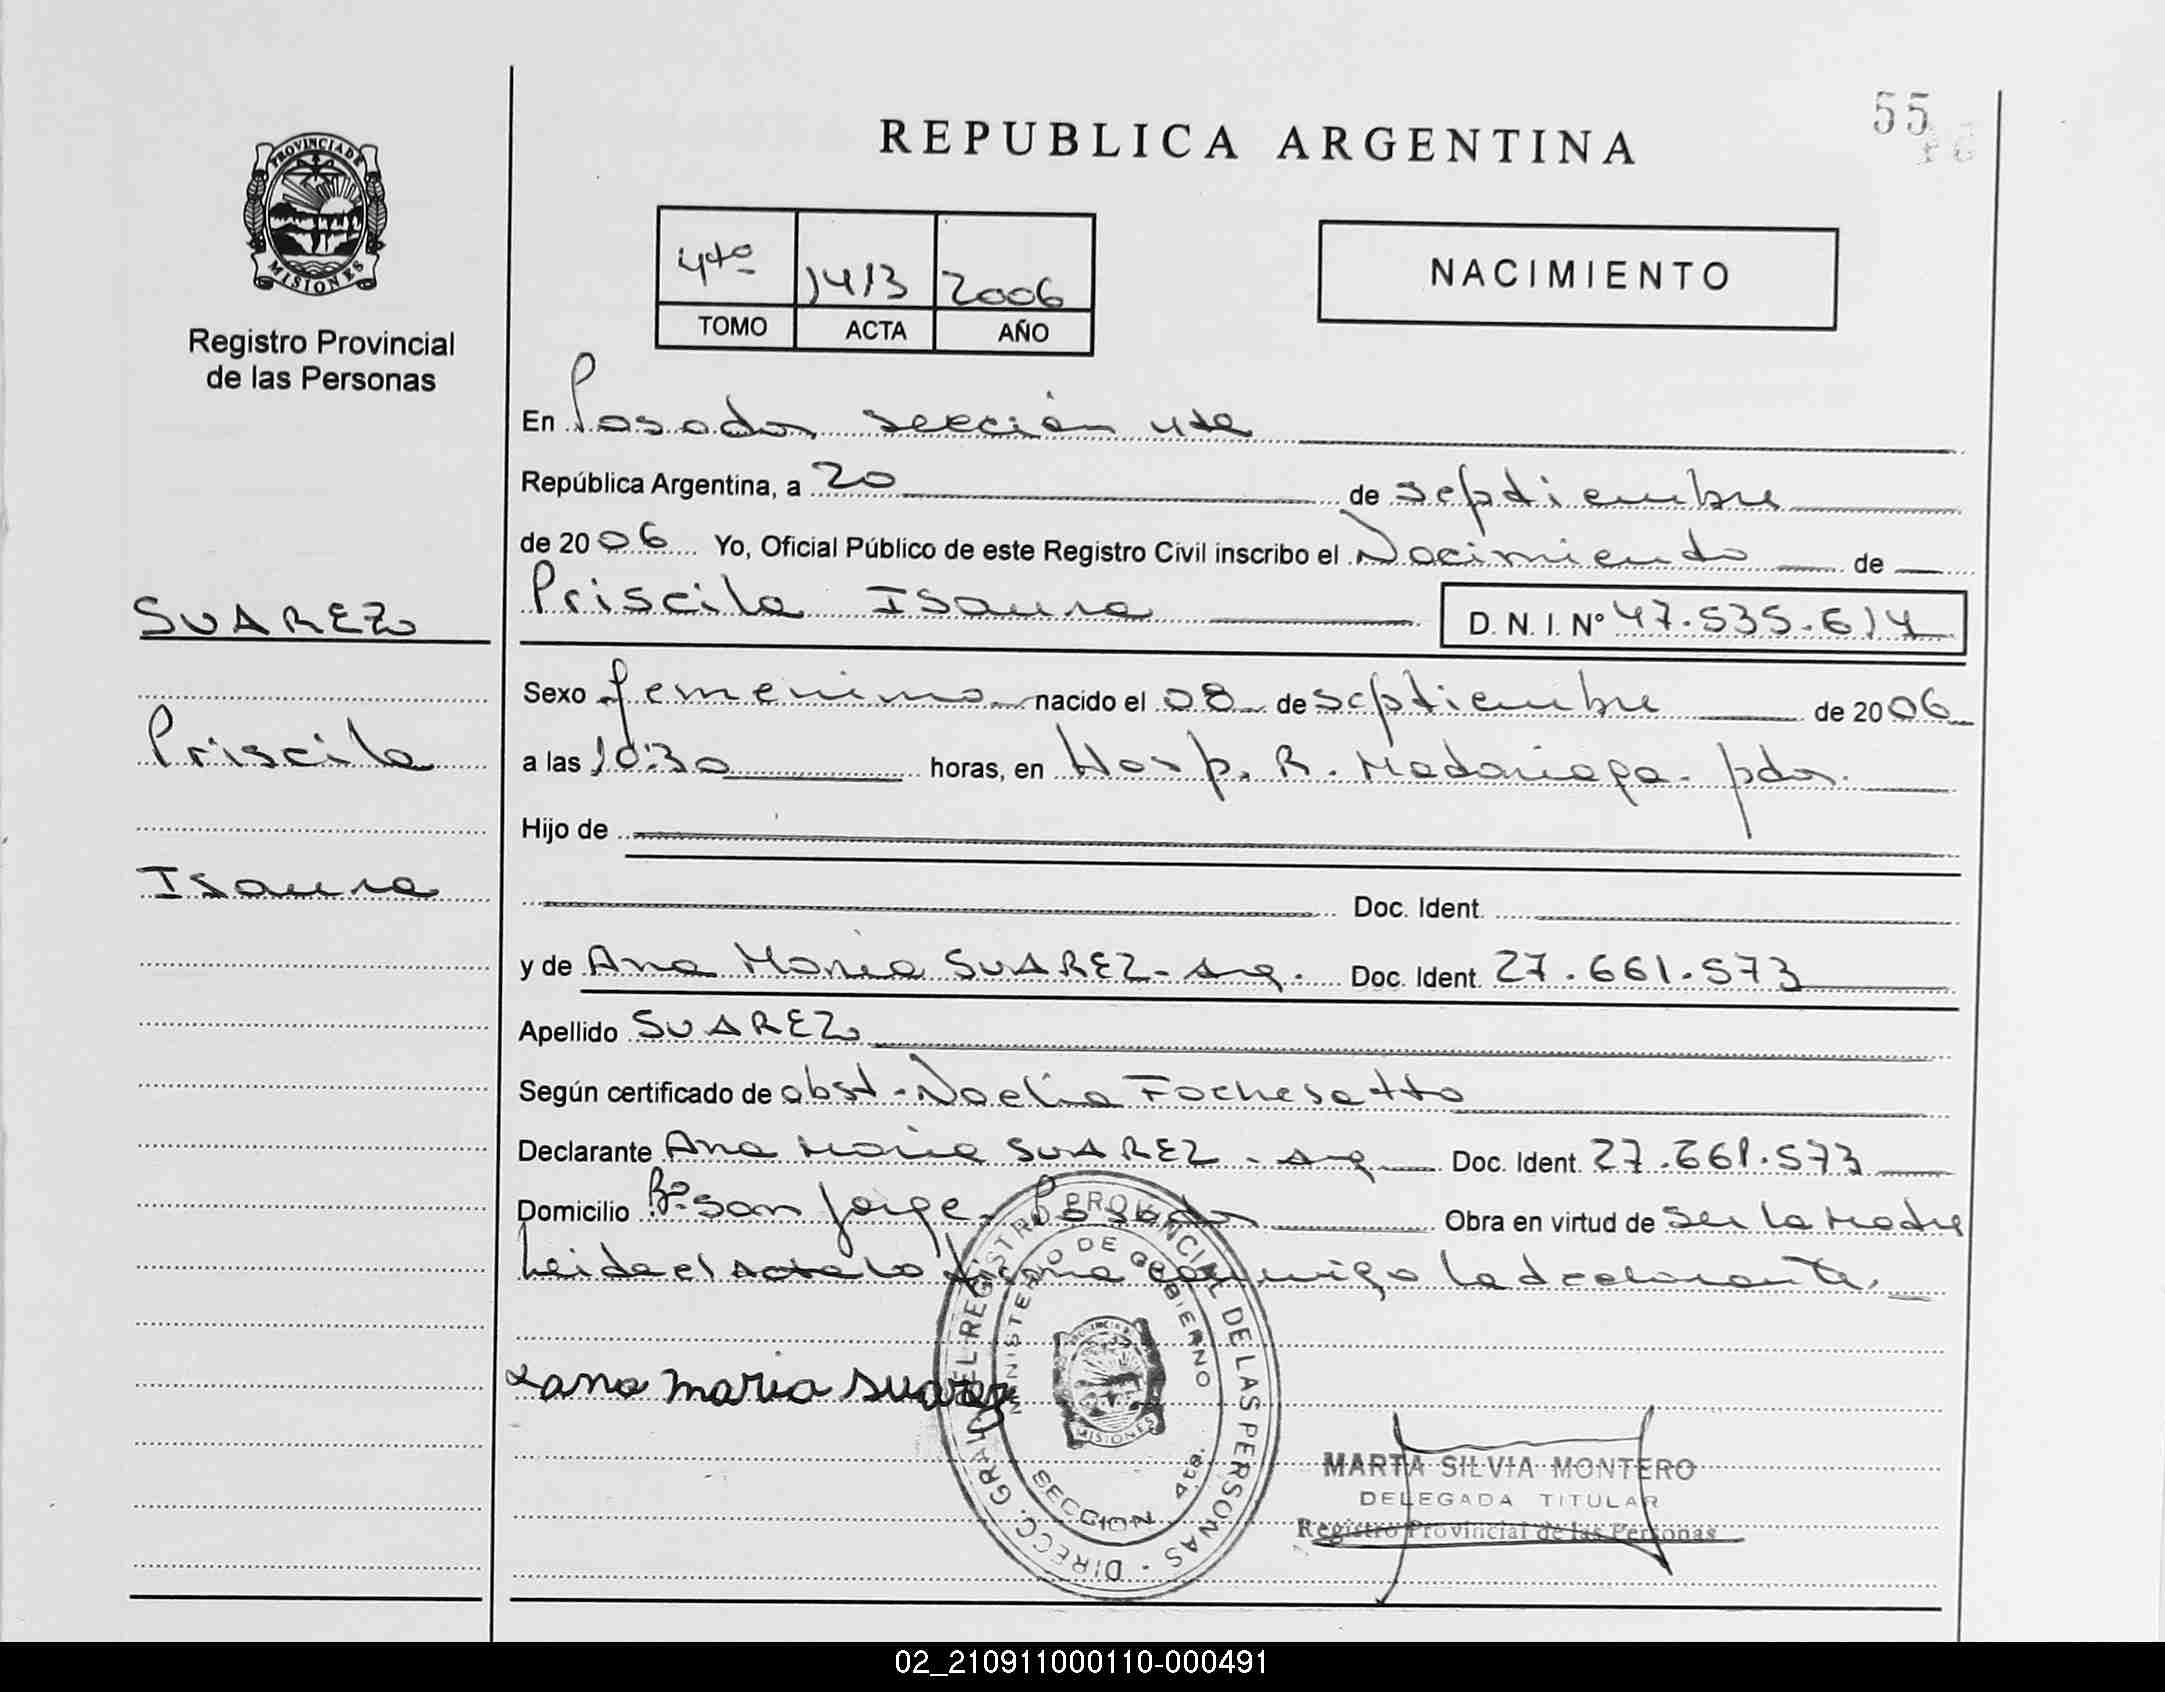 REPUBLICA ARGENTINA
55
PROVINCIA DE
MISIONES
Registro Provincial
de las Personas
4to 1413 2006
TOMO ACTA AÑO
NACIMIENTO
En Posadas sección 4ta
República Argentina, a 20 de septiembre
de 2006 Yo, Oficial Público de este Registro Civil inscribo el Nacimiento de
SUAREZ
Priscila Isaura D. N. I. Nº 47.535.614
Sexo femenino nacido el 08 de septiembre de 2006
Priscila
a las 10:30 horas, en Hosp. R. Madariaga. pdas.
Hijo de
Isaura
Doc. Ident.
y de Ana Maria SUAREZ - arg. Doc. Ident. 27.661.573
Apellido SUAREZ
Según certificado de obst. Noelia Fochesatto
Declarante Ana Maria SUAREZ - arg Doc. Ident. 27.661.573
Domicilio Bº San Jorge - Posadas Obra en virtud de ser la Madre
Leida el acta la firma conmigo la declarante.
ana maria suarez
DIRECC. GRAL. DEL REGISTRO PROVINCIAL DE LAS PERSONAS
MINISTERIO DE GOBIERNO
PROVINCIA DE
MISIONES
SECCION 4ta.
MARTA SILVIA MONTERO
DELEGADA TITULAR
Registro Provincial de las Personas
02_210911000110-000491